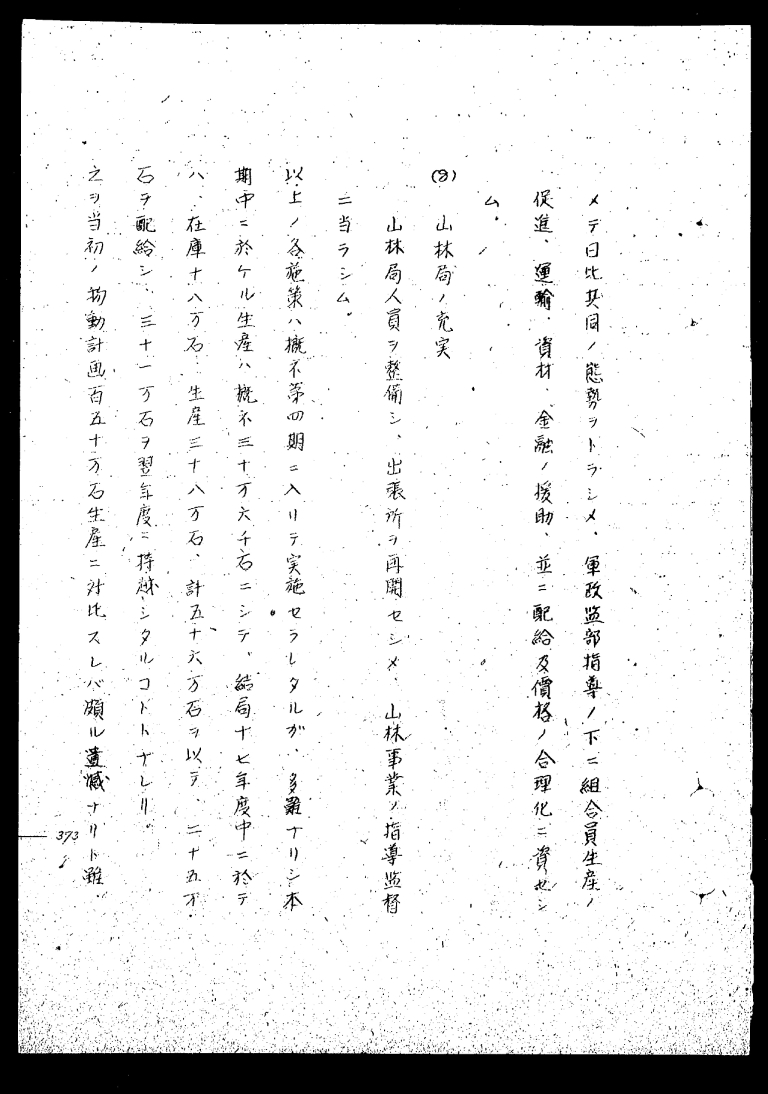 メテ日比共同ノ態勢ヲトラシメ、軍政監部指導ノ下ニ組合員生産ノ
促進、運輸、資材、金融ノ援助、並ニ配給及價格ノ合理化ニ資セシ
ム。
山林局ノ充実
山林局人員ヲ整備シ、出張所ヲ再開セシメ、山林事業ノ指導監督
ニ当ラシム。
以上ノ各施策ハ概ネ第四期ニ入リテ実施セラレタルガ、多難ナリシ本
期中ニ於ケル生産ハ概ネ三十万六千石ニシテ、結局十七年度中ニ於テ
ハ、在庫十八万石、生産三十八万石、計五十六万石ヲ以テ、二十五万
石ヲ配給シ、三十一万石ヲ翌年度ニ持越シタルコトトナレリ。
之ヲ当初ノ物動計画百五十万石生産ニ対比スレバ頗ル遺憾ナリト雖、
393